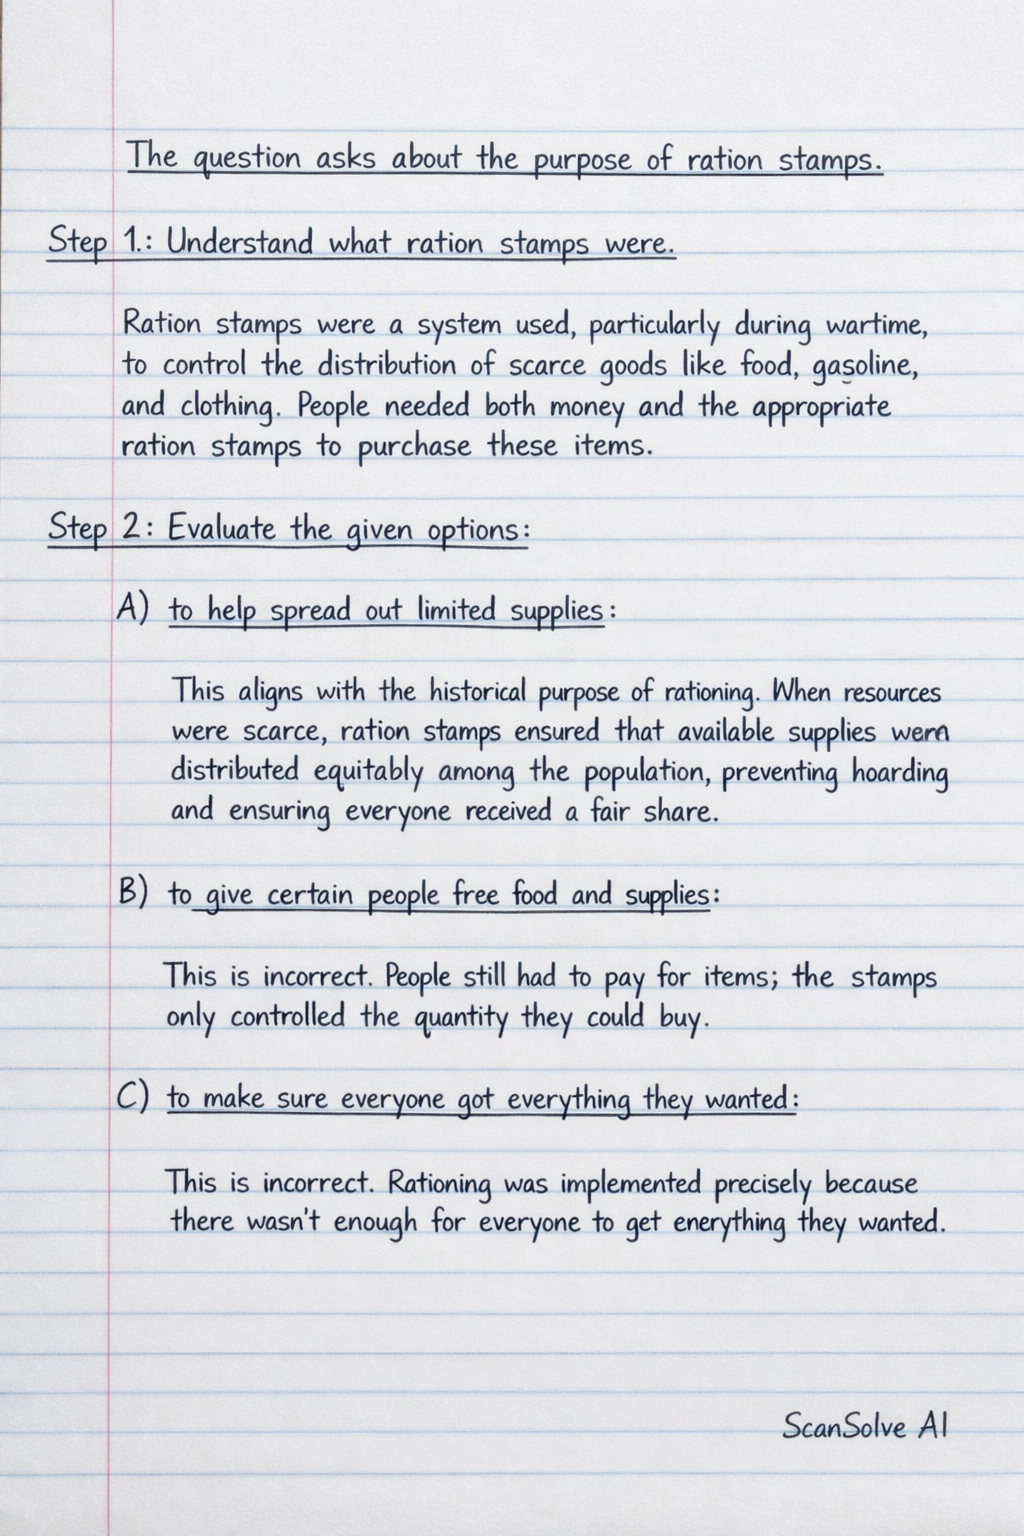 The question asks about the purpose of ration stamps.
Step 1.: Understand what ration stamps were.
Ration stamps were a system used, particularly during wartime,
to control the distribution of scarce goods like food, gasoline,
and clothing. People needed both money and the appropriate
ration stamps to purchase these items.
Step 2: Evaluate the given options:
A) to help spread out limited supplies:
This aligns with the historical purpose of rationing. When resources
were scarce, ration stamps ensured that available supplies wern
distributed equitably among the population, preventing hoarding
and ensuring everyone received a fair share.
B) to give certain people free food and supplies:
This is incorrect. People still had to pay for items; the stamps
only controlled the quantity they could buy.
C) to make sure everyone got everything they wanted:
This is incorrect. Rationing was implemented precisely because
there wasn't enough for everyone to get enerything they wanted.
ScanSolve AI